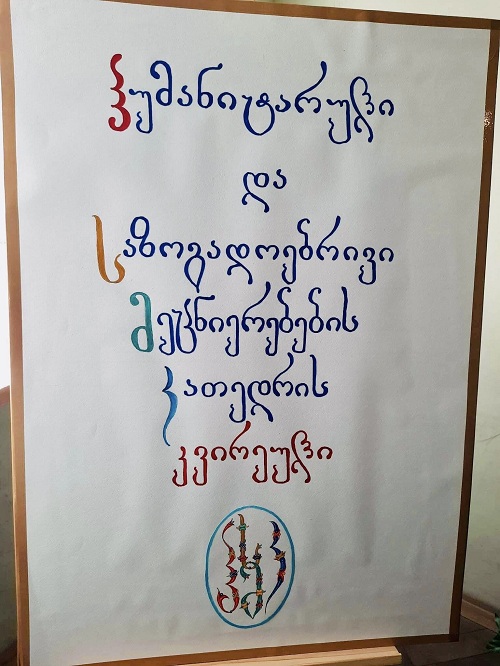 ჰუმანიტარული
და
საზოგადოებრივი
მეცნიერებების
კათედრის
კვირეული